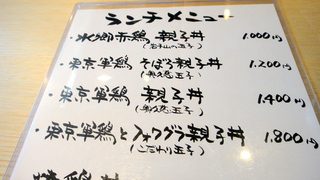 ランチメニュー
・水郷赤鶏 親子丼 1.000円
(岩手山の玉子)
・東京軍鶏 そぼろ親子丼 1.200円
(奥久慈玉子)
・東京軍鶏 親子丼 1.400円
(奥久慈玉子)
・東京軍鶏とフォワグラ親子丼 1.800円
(こだわり玉子)